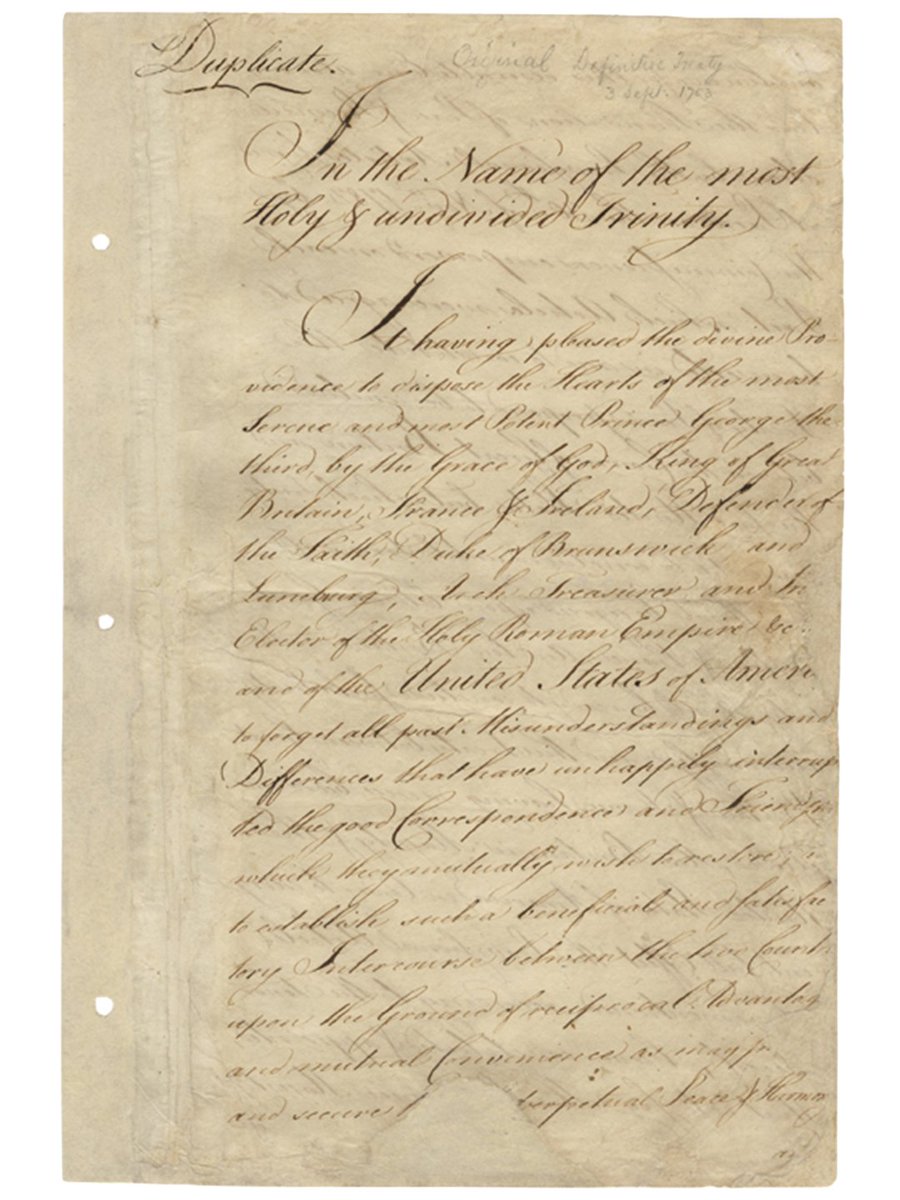 Duplicate.
Original Definitive Treaty
3 Sept. 1783
In the Name of the most
Holy & undivided Trinity.
It having pleased the divine Pro-
vidence to dispose the Hearts of the most
Serene and most Potent Prince George the
third, by the Grace of God, King of Great
Britain, France & Ireland, Defender of
the Faith, Duke of Brunswick and
Lunebourg, Arch Treasurer, and
Elector of the Holy Roman Empire &c.
and of the United States of Ameri
to forget all past Misunderstandings and
Differences that have unhappily interrup
ted the good Correspondence and Friend
which they mutually wish to restore;
to establish such a beneficial and satisfac
tory Intercourse between the two Countr
upon the Ground of reciprocal Advantag
and mutual Convenience as may
and secure perpetual Peace & Harmon